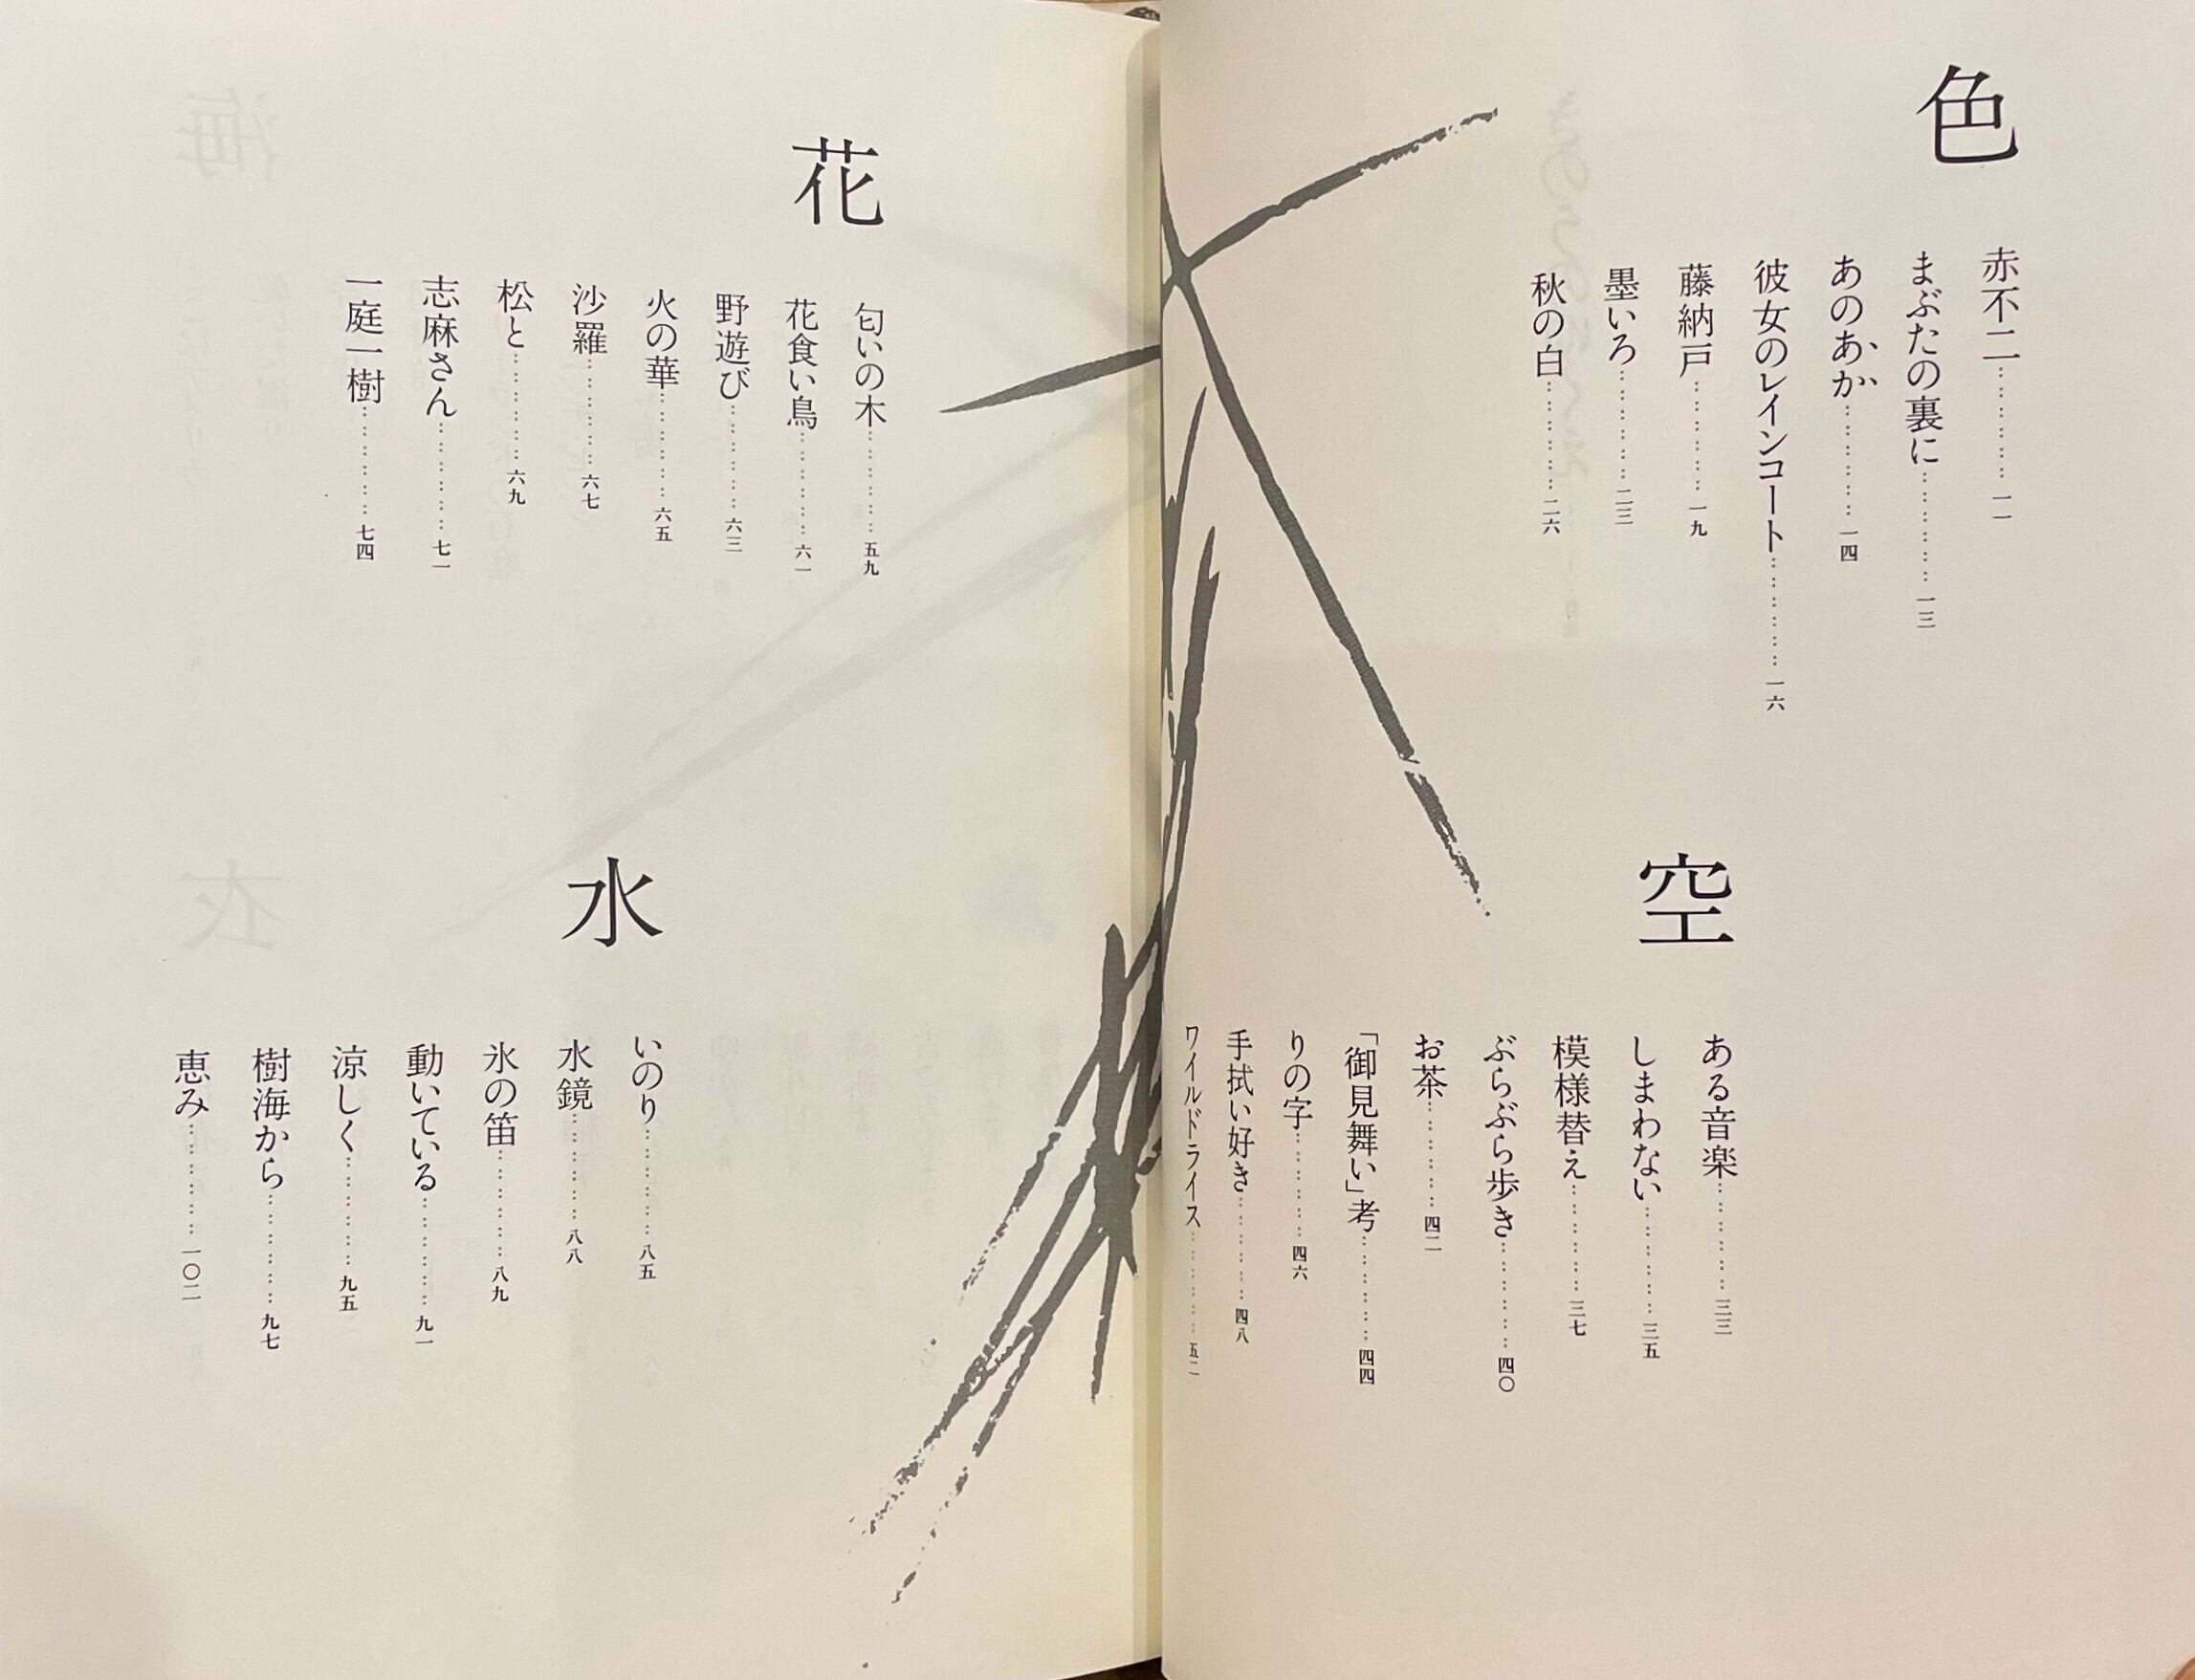 色
赤不二…………一一
まぶたの裏に…………一三
あのあか…………一四
彼女のレインコート…………一六
藤納戸…………一九
墨いろ…………二三
秋の白…………二六
空
ある音楽…………三三
しまわない…………三五
模様替え…………三七
ぶらぶら歩き…………四〇
お茶…………四二
「御見舞い」考…………四四
りの字…………四六
手拭い好き…………四八
ワイルドライス…………五二
花
匂いの木…………五九
花食い鳥…………六一
野遊び…………六三
火の華…………六五
沙羅…………六七
松と…………六九
志麻さん…………七一
一庭一樹…………七四
水
いのり…………八五
水鏡…………八八
氷の笛…………八九
動いている…………九一
涼しく…………九五
樹海から…………九七
恵み…………一〇二